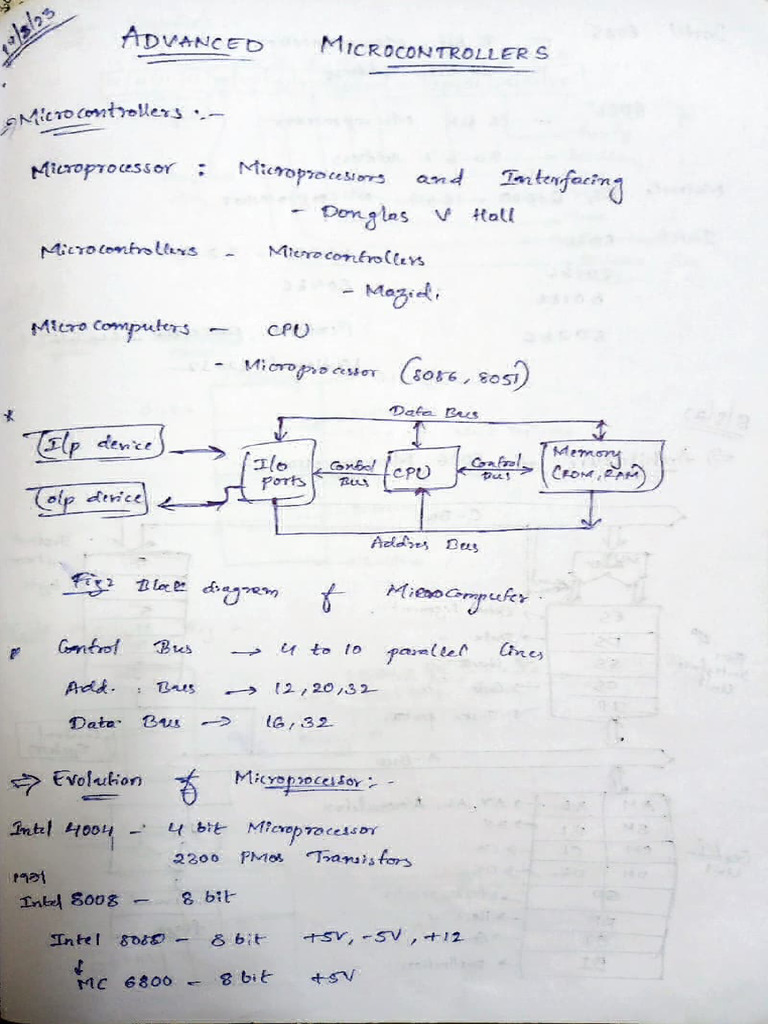 ADVANCED MICROCONTROLLERS
Microcontrollers :-
Microprocessor : Microprocessors and Interfacing
- Donglas V Hall
Microcontrollers - Microcontrollers
- Mazidi
Microcomputers - CPU
- Microprocessor (8086, 8051)
Data Bus
I/p device
I/o ports
Control Bus
CPU
Control Bus
Memory (ROM, RAM)
o/p device
Address Bus
Fig: Block diagram of MicroComputer.
Control Bus → 4 to 10 parallel lines
Add. Bus → 12,20,32
Data Bus → 16,32
⇒ Evolution of Microprocessor:-
Intel 4004 - 4 bit Microprocessor
2300 PMOS Transistors
Intel 8008 - 8 bit
Intel - 8 bit +5V, -5V, +12
MC 6800 - 8 bit +5V